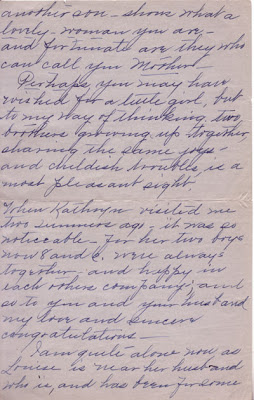 another son - shows what a
lovely - woman you are -
and fortunate are they who
can call you Mother.
Perhaps, you may have
wished for a little girl, but
to my way of thinking, two
brothers growing up together,
sharing the same joys -
and childish troubles, is a
most pleasant sight.
When Kathryn visited me
two summers ago - it was so
noticeable - for her two boys
now 8 and 6. were always
together, and happy in
each others company; and
so to you and your husband
my love and sincere
congratulations -
I am quite alone now, as
Louise is near her husband
who is, and has been for some